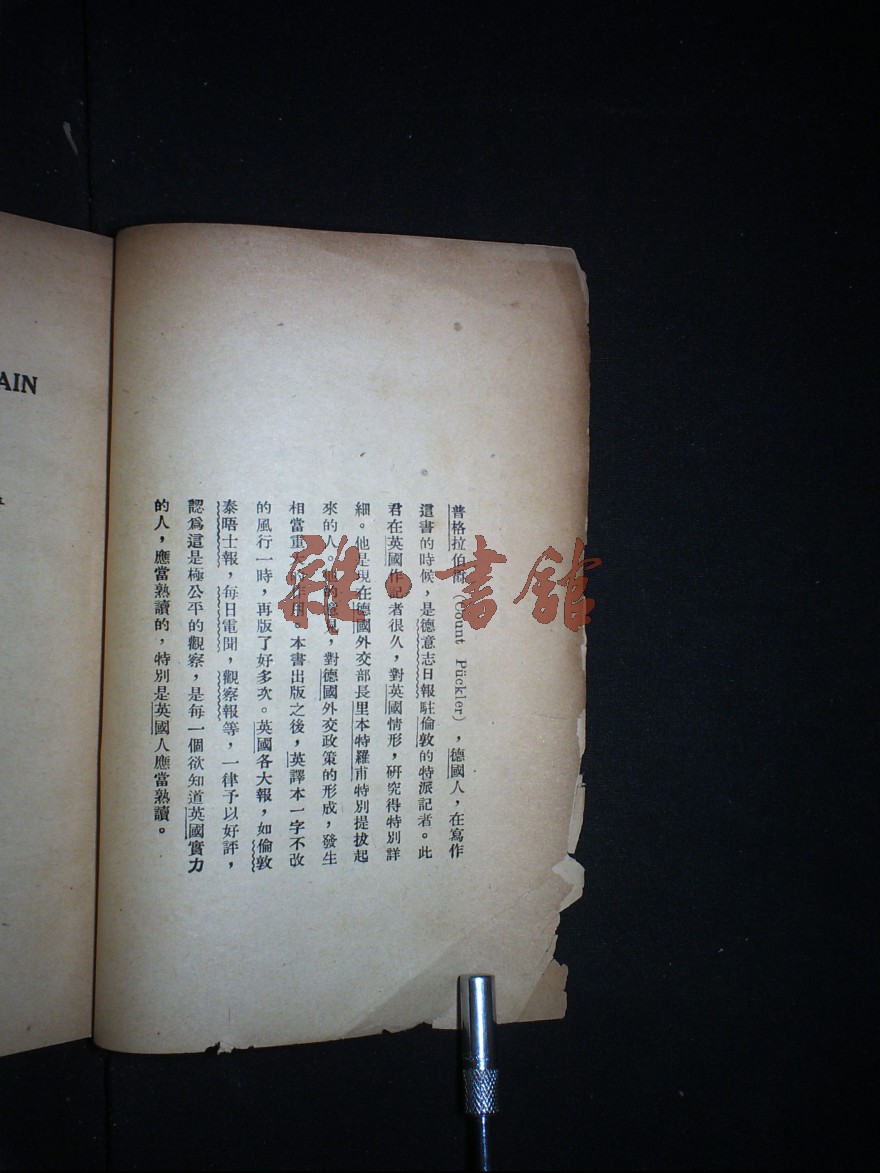 普格拉伯爵（Count Pückler），德國人，在寫作
這書的時候，是德意志日報駐倫敦的特派記者。此
君在英國作記者很久，對英國情形，研究得特別詳
細。他是現在德國外交部長里本特羅甫特別提拔起
來的人。他的意見，對德國外交政策的形成，發生
相當重大的作用。本書出版之後，英譯本一字不改
的風行一時，再版了好多次。英國各大報，如倫敦
泰晤士報，每日電聞，觀察報等，一律予以好評，
認為這是極公平的觀察，是每一個欲知道英國實力
的人，應當熟讀的，特別是英國人應當熟讀。
AIN
雜·書館